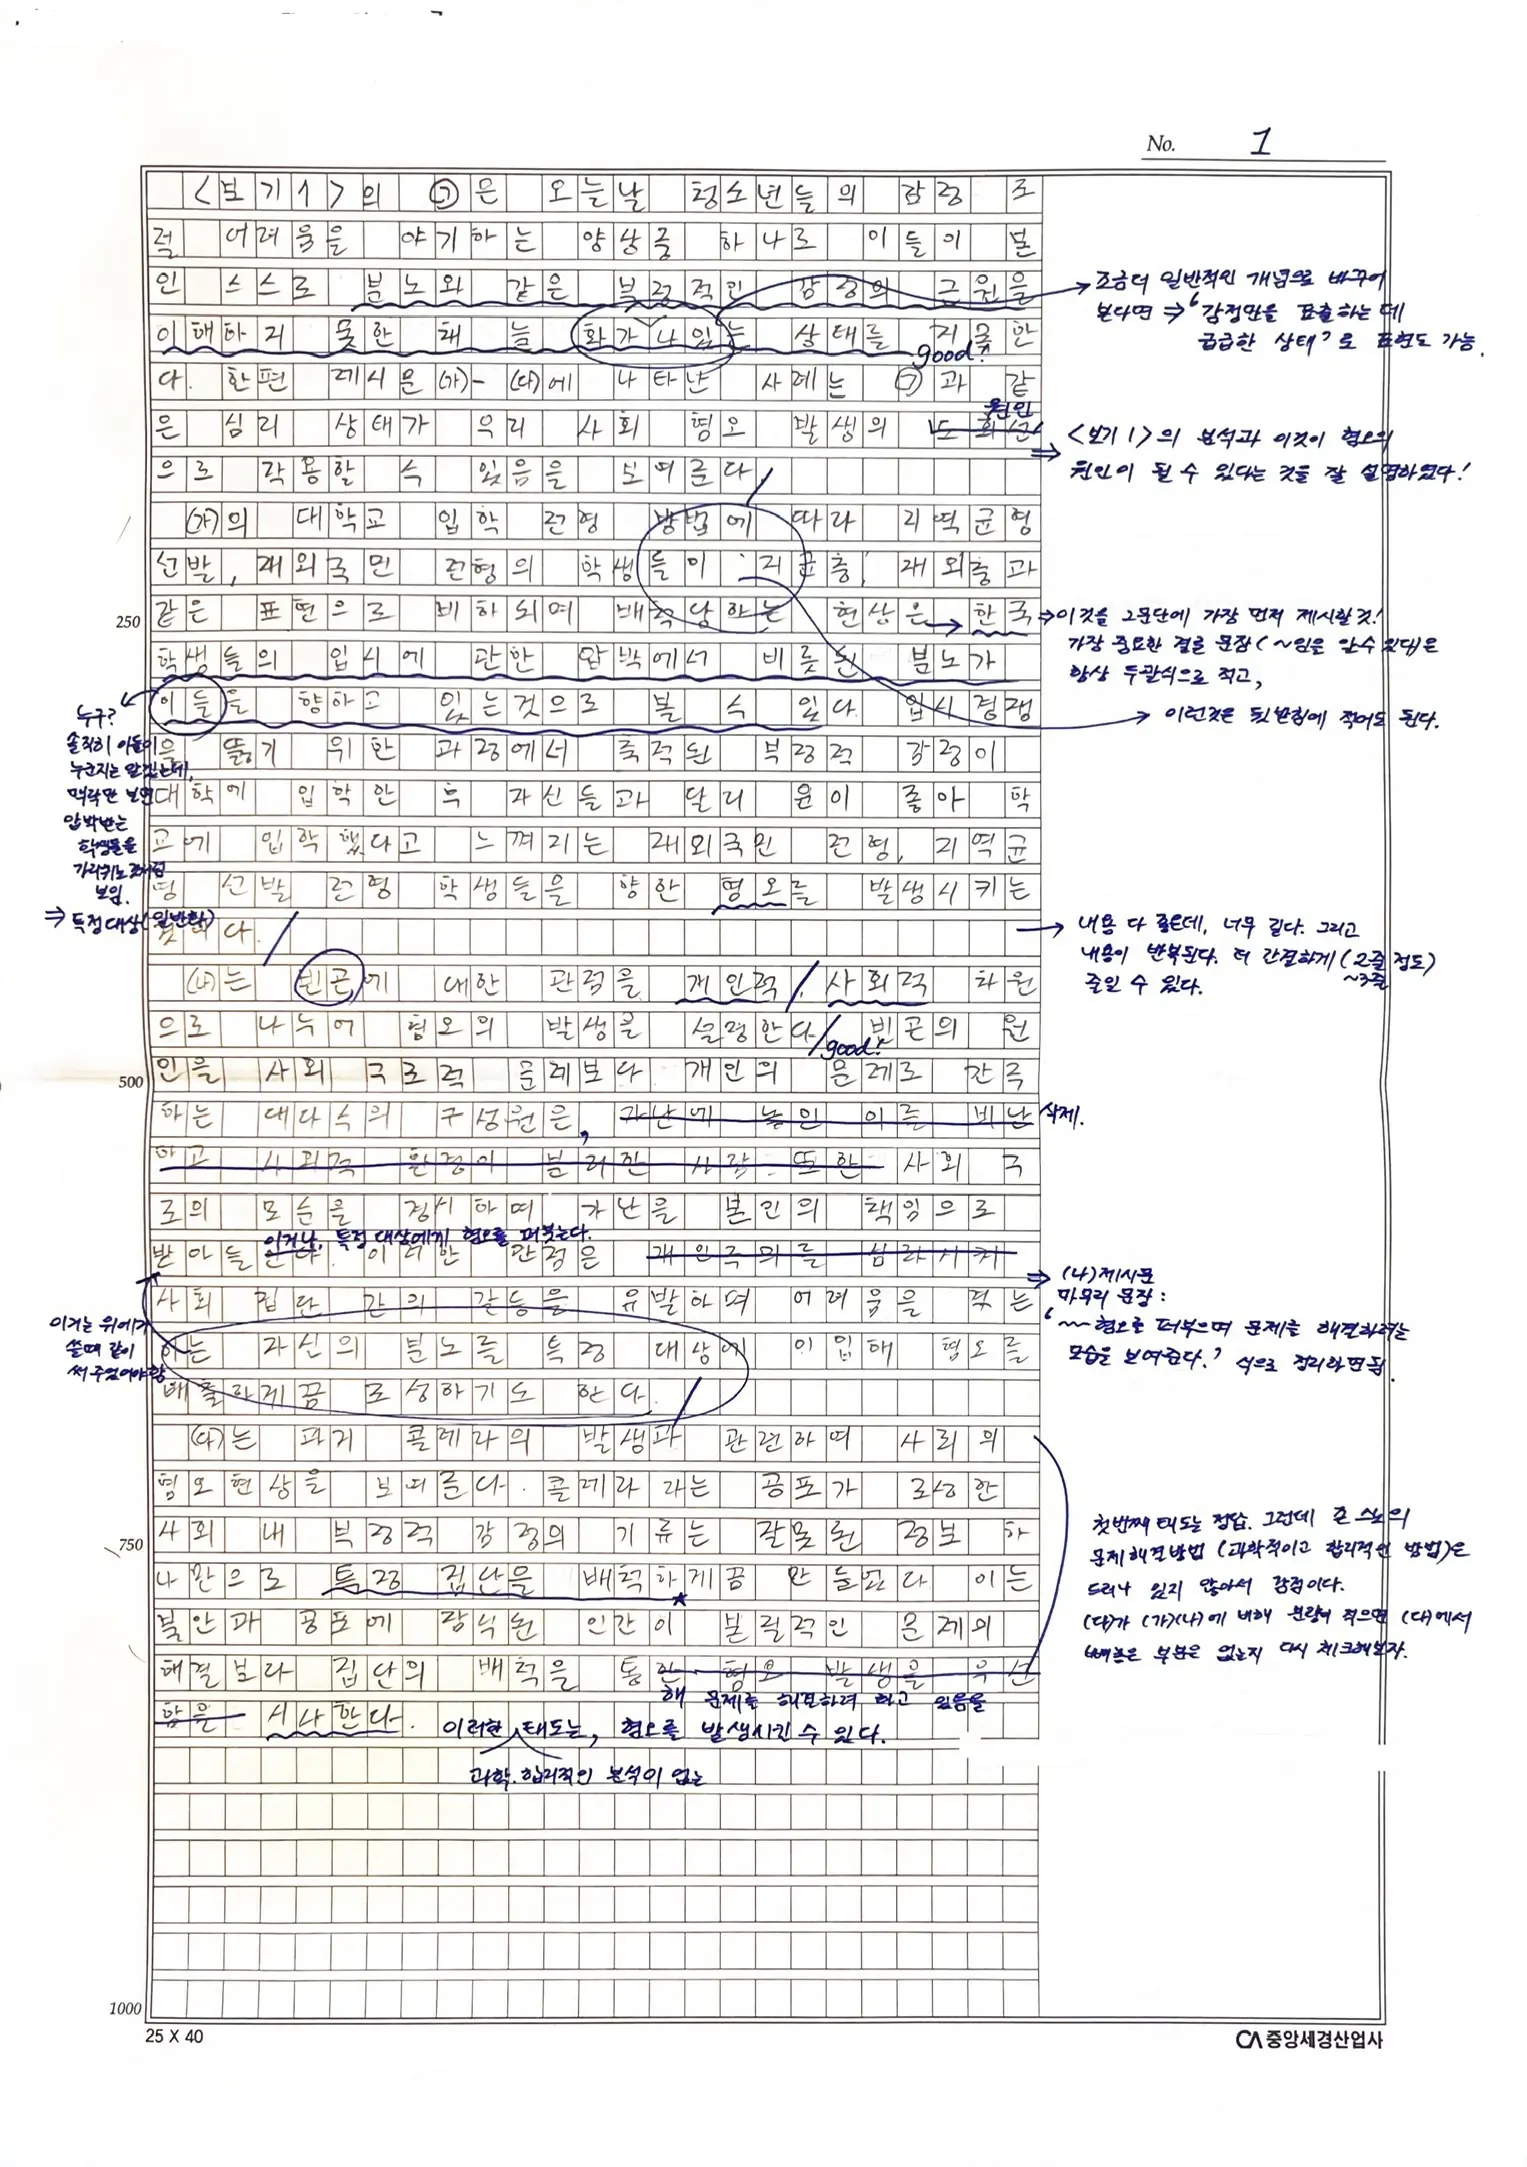 No. 1
<보기1>의 ㉠은 오늘날 청소년들의 감정 조
절 어려움을 야기하는 양상 중 하나로 이들이 본
인 스스로 분노와 같은 부정적인 감정의 근원을
이해하지 못한 채 늘 화가 나 있는 상태를 지칭한
good!
다. 한편 제시문 (가)-(다)에 나타난 사례는 ㉠과 같
원인
은 심리 상태가 우리 사회 혐오 발생의 도화선
으로 작용할 수 있음을 보여준다.
(가)의 대학교 입학 전형 방법에 따라 지역균형
선발, 재외국민 전형의 학생들이 '지균충', 재외충과
250
같은 표현으로 비하되며 배척당하는 현상은 한국
학생들의 입시에 관한 압박에서 비롯된 분노가
이들을 향하고 있는 것으로 볼 수 있다. 입시 경쟁
을 뚫기 위한 과정에서 축적된 부정적 감정이
대학에 입학한 후 자신들과 달리 운이 좋아 학
교에 입학했다고 느껴지는 재외국민 전형, 지역균
형 선발 전형 학생들을 향한 혐오를 발생시키는
것이다.
(나)는 빈곤에 대한 관점을 개인적, 사회적 차원
으로 나누어 혐오의 발생을 설명한다. 빈곤의 원
good!
500
인을 사회 구조적 문제보다 개인의 문제로 간주
하는 대다수의 구성원은, 가난에 놓인 이를 비난
하고 사회적 환경이 불리한 사람 또한 사회 구
조의 모순을 경시하며 가난을 본인의 책임으로
이거나, 특정 대상에게 혐오를 퍼붓는다.
받아들인다. 이러한 관점은 개인주의를 심화시켜
사회 집단 간의 갈등을 유발하며 어려움을 겪는
하는 자신의 분노를 특정 대상에 이입해 혐오를
배출하게끔 조성하기도 한다.
(다)는 과거 콜레라의 발생과 관련하여 사회의
혐오 현상을 보여준다. 콜레라 라는 공포가 조성한
750
사회 내 부정적 감정의 기류는 잘못된 정보 하
나만으로 특정 집단을 배척하게끔 만들었다. 이는
불안과 공포에 잠식된 인간이 본질적인 문제의
해결보다 집단의 배척을 통한 혐오 발생을 우선
해 문제를 해결하려 하고 있음을
함을 시사한다. 이러한 태도는, 혐오를 발생시킬 수 있다.
과학.합리적인 분석이 없는
1000
25 X 40
CA 중앙세경산업사
조금더 일반적인 개념으로 바꾸어
본다면 ⇒ '감정만을 표출하는 데
급급한 상태'로 표현도 가능.
<보기 1>의 분석과 이것이 혐오의
원인이 될 수 있다는 것을 잘 설명하였다!
⇒이것을 2문단에 가장 먼저 제시할것!
가장 중요한 결론 문장(~임을 알수 있다)은
항상 두괄식으로 적고,
이런것은 뒷받침에 적어도 된다.
누구?
솔직히 이들이
누군지는 알겠는데,
맥락만 보면
압박받는
학생들을
가리키는 것처럼
보임.
⇒ 특정대상(일반화)
내용 다 좋은데, 너무 길다. 그리고
내용이 반복된다. 더 간결하게(2줄 정도)
~3줄
줄일 수 있다.
삭제.
⇒ (나)제시문
마무리 문장:
'~~ 혐오를 퍼부으며 문제를 해결하려는
모습을 보여준다.' 식으로 정리하면 됨.
이거는 위에거
쓸때 같이
써 주었어야 함
첫번째 태도는 정답. 그런데 존 스노의
문제해결방법(과학적이고 합리적인 방법)은
드러나 있지 않아서 감점이다.
(다)가 (가)(나)에 비해 분량이 적으면 (다)에서
빼먹은 부분은 없는지 다시 체크해보자.